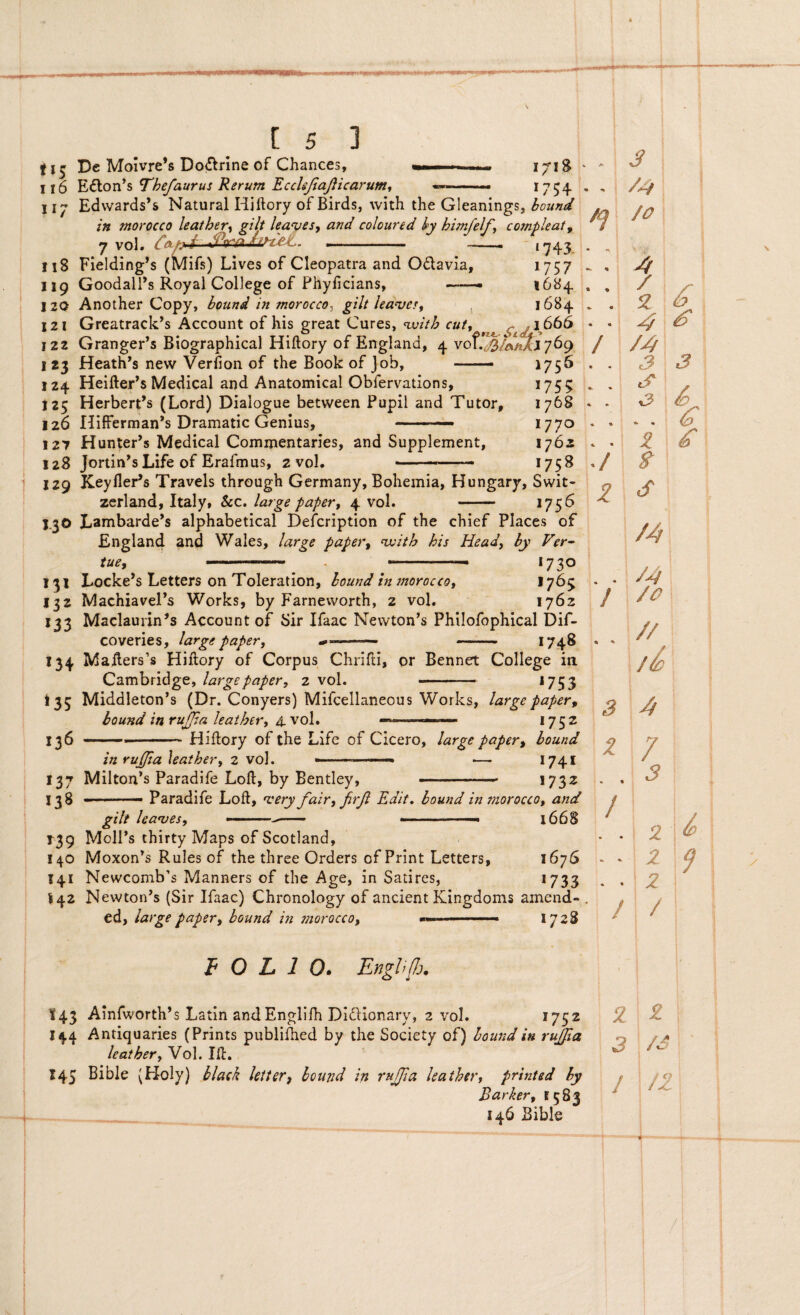 [ 5 ]
115 De Moivre's Doctrine of Chances, 1718 3
116 Ecton's Theſaurus Rerum Eccleſiaſticarum, 1754 14
117 Edwards's Natural Hiſtory of Birds, with the Gleanings, bound
in morocco leather, gilt leaves, and coloured by himſelf, compleat, 19 10
7 vol. —— 1743
118 Fielding's (Miſs) Lives of Cleopatra and Octavia, 1757 4
119 Goodall's Royal College of Phyſicians, —— 1684 1
120 Another Copy, bound in morocco, gilt leaves, 1684 2 6
121 Greatrack's Account of his great Cures, with cut, 1666 4 6
122 Granger's Biographical Hiſtory of England, 4 vol. 1769 1 14
123 Heath's new Verſion of the Book of Job, —— 1756 3 3
124 Heiſter's Medical and Anatomical Obſervations, 1755 5
125 Herbert's (Lord) Dialogue between Pupil and Tutor, 1768 3 6
126 Hifferman's Dramatic Genius, —— 1770 6
127 Hunter's Medical Commentaries, and Supplement, 1762 2 6
128 Jortin's Life of Eraſmus, 2 vol. —— 1758 1 8
129 Keyſler's Travels through Germany, Bohemia, Hungary, Swit-
zerland, Italy, &c. large paper, 4 vol. —— 1756 2 5
130 Lambarde's alphabetical Deſcription of the chief Places of
England and Wales, large paper, with his Head, by Ver-
tue, —— —— 1730 14
131 Locke's Letters on Toleration, bound in morocco, 1765 14
132 Machiavel's Works, by Farneworth, 2 vol. 1762 1 10
133 Maclaurin's Account of Sir Iſaac Newton's Philoſophical Diſ-
coveries, large paper, —— —— 1748 11
134 Maſters's Hiſtory of Corpus Chriſti, or Bennet College in
Cambridge, large paper, 2 vol. —— 1753 16
135 Middleton's (Dr. Conyers) Miſcellaneous Works, large paper,
bound in ruſſia leather, 4 vol. —— 1752 3 4
136 —— Hiſtory of the Life of Cicero, large paper, bound
in ruſſia leather, 2 vol. —— — 1741 2 7
137 Milton's Paradiſe Loſt, by Bentley, —— 1732 3
138 —— Paradiſe Loſt, very fair, firſt Edit. bound in morocco, and
gilt leaves, —— —— 1668 1
139 Moll's thirty Maps of Scotland, 2 6
140 Moxon's Rules of the three Orders of Print Letters, 1676 2 9
141 Newcomb's Manners of the Age, in Satires, 1733 2
142 Newton's (Sir Iſaac) Chronology of ancient Kingdoms amend-
ed, large paper, bound in morocco, —— 1728 1 1
FOLIO. Engliſh.
143 Ainſworth's Latin and Engliſh Dictionary, 2 vol. 1752 2 2
144 Antiquaries (Prints publiſhed by the Society of) bound in ruſſia
leather, Vol. Iſt. 3 15
145 Bible (Holy) black letter, bound in ruſſia leather, printed by
Barker, 1583 1 12
146 Bible